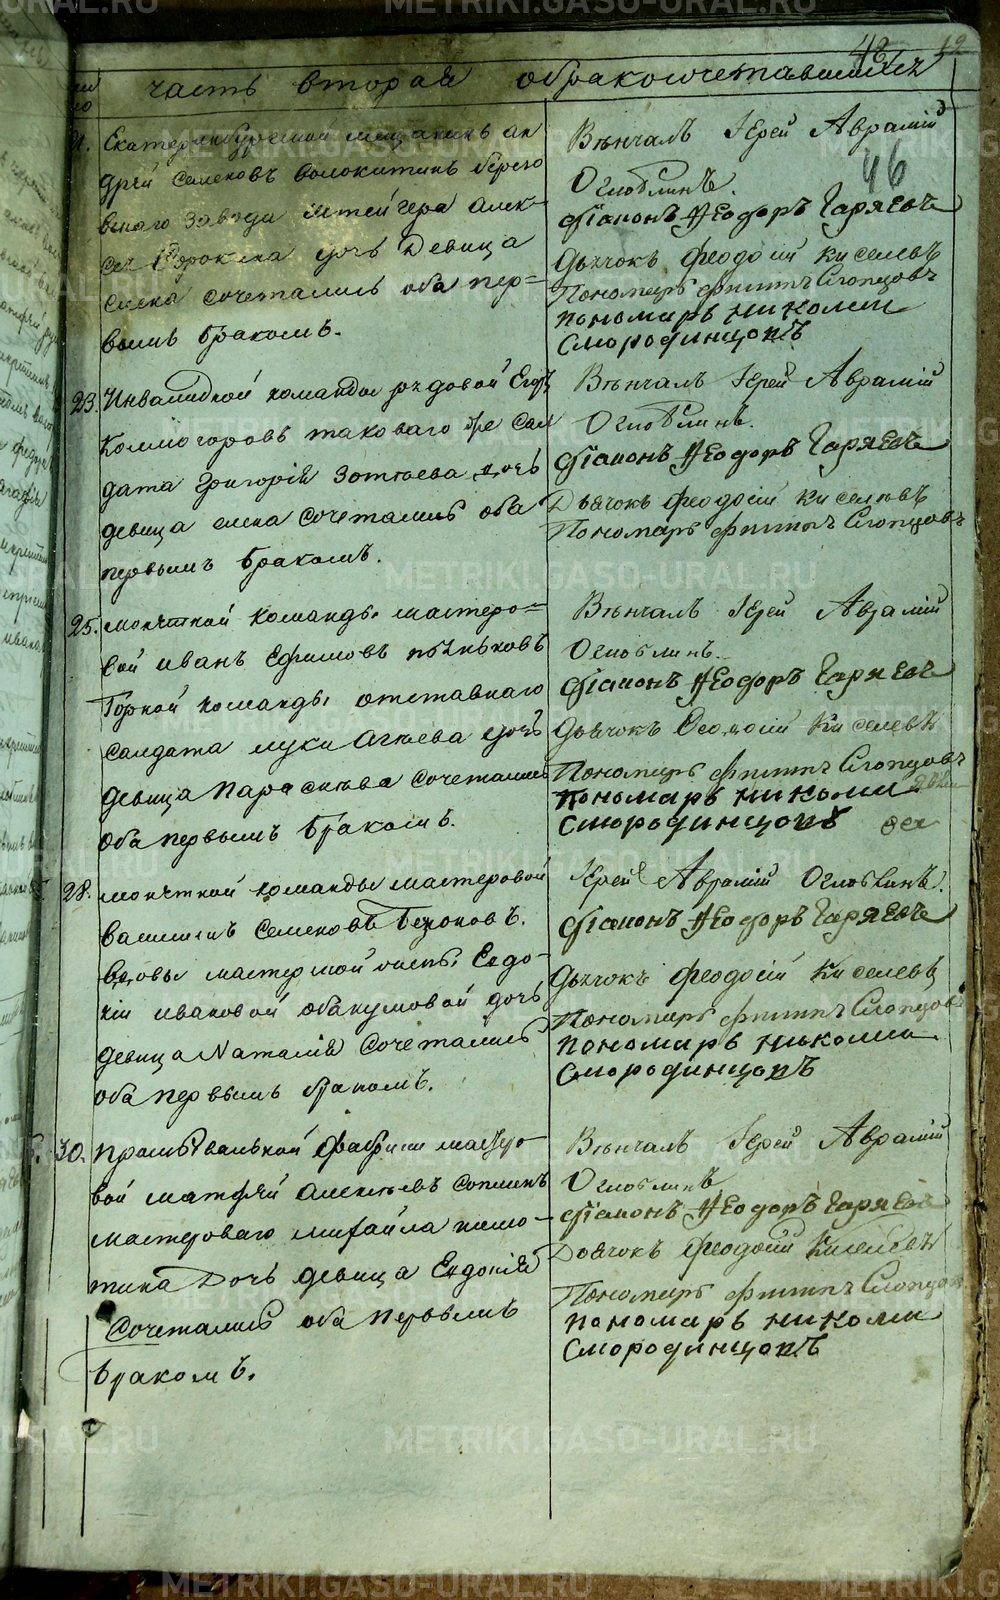 48 12
часть вторая обракосочетавшихся
46
21. Екатеринбургской мещанинъ ан
дрей Семеновъ волокитинъ березо
вскаго завода штейгера Алек-
сея Сорокина дочь Девица
елена сочетались оба пер-
вымъ бракомъ.
Вѣнчалъ Iерей Аврамій
Оглоблинъ.
діаконъ Ѳеодоръ Гаряевъ
Дьячокъ феодосій Киселевъ
Пономарь филипъ Слопцовъ
пономарь николай
Смородинцовъ
23. Инвалидной команды рядовой Егоръ
Колмогоровъ таковаго же сол
дата Григорія Зотѣева дочь
девица елена сочетались оба
первымъ бракомъ.
Вѣнчалъ Iерей Аврамій
Оглоблинъ.
діаконъ Ѳеодоръ Гаряевъ
Дьячокъ феодосій Киселевъ
Пономарь филипъ Слопцовъ
25. монѣтной команды мастеро-
вой иванъ Ефимовъ пѣньковъ
Горной команды отставнаго
салдата луки Агѣева дочь
девица параскѣва сочетались
оба первымъ бракомъ.
Вѣнчалъ Iерей Аврамій
Оглоблинъ.
діаконъ Ѳеодоръ Гаряевъ
Дьячокъ Феодосій Киселевъ
Пономарь филипъ Слопцовъ
пономарь николай
Смородинцовъ
28. монѣтной команды мастеровой
василиі Семеновъ
вдовы мастерской жены Евдо-
кіи ивановой абакумовой дочь
девица Наталія Сочетались
оба первымъ бракомъ.
Iерей Аврамій Оглоблинъ.
діаконъ Ѳеодоръ Гаряевъ
Дьячокъ феодосій Киселевъ
Пономарь филипъ Слопцовъ
пономарь николай
Смородинцовъ
30. промывальной фабрики мастеро-
вой матфей Алексѣевъ
мастероваго михайла
Дочь девица Евдокія
Сочетались оба первымъ
бракомъ.
Вѣнчалъ Iерей Аврамій
Оглоблинъ
діаконъ Ѳеодоръ Гаряевъ
Дьячокъ феодосій Киселевъ
Пономарь филипъ Слопцовъ
пономарь николай
Смородинцовъ
METRIKI.GASO-URAL.RU